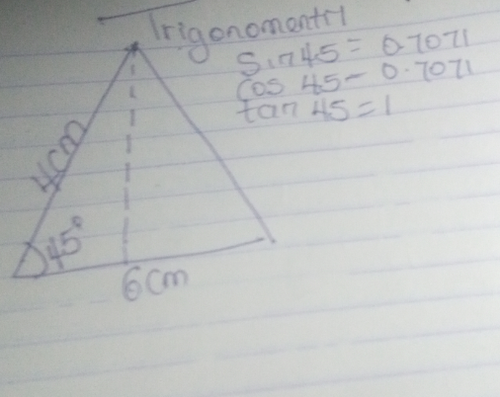 Trigonomentry
Sin 45 = 0.7071
Cos 45 - 0.7071
tan 45 = 1
4cm
45°
6cm